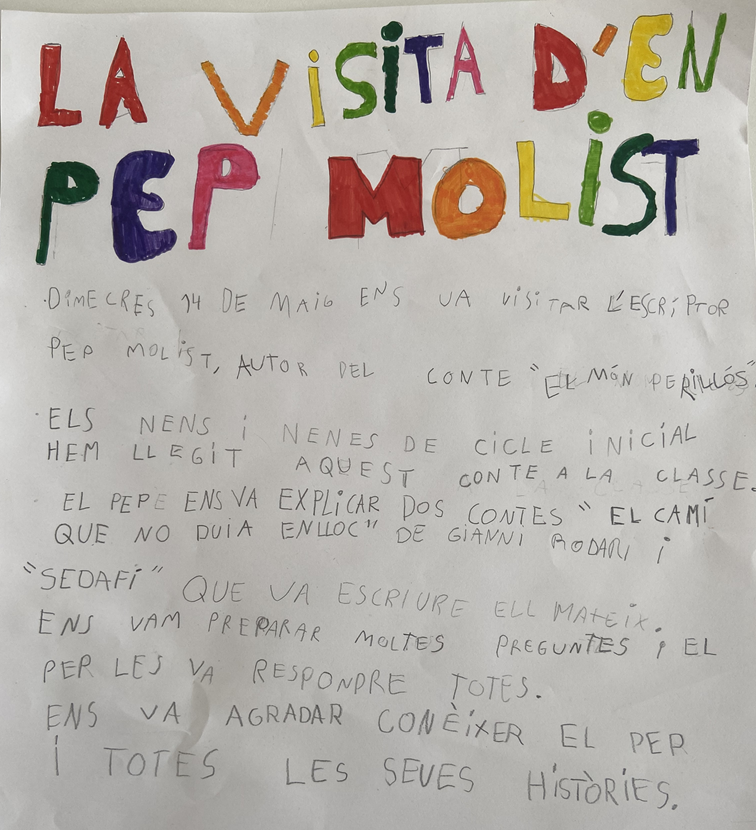 LA VISITA D'EN
PEP MOLIST
·DIMECRES 14 DE MAIG ENS VA VISITAR L'ESCRIPTOR
PEP MOLIST, AUTOR DEL CONTE "EL MÓN PERILLÓS"
·ELS NENS I NENES DE CICLE INICIAL
HEM LLEGIT AQUEST CONTE A LA CLASSE.
EL PEPE ENS VA EXPLICAR DOS CONTES "EL CAMÍ
QUE NO DUIA ENLLOC" DE GIANNI RODARI I
"SEDAFÍ" QUE VA ESCRIURE ELL MATEIX.
ENS VAM PREPARAR MOLTES PREGUNTES I EL
PEP LES VA RESPONDRE TOTES.
ENS VA AGRADAR CONÈIXER EL PEP
I TOTES LES SEVES HISTÒRIES.